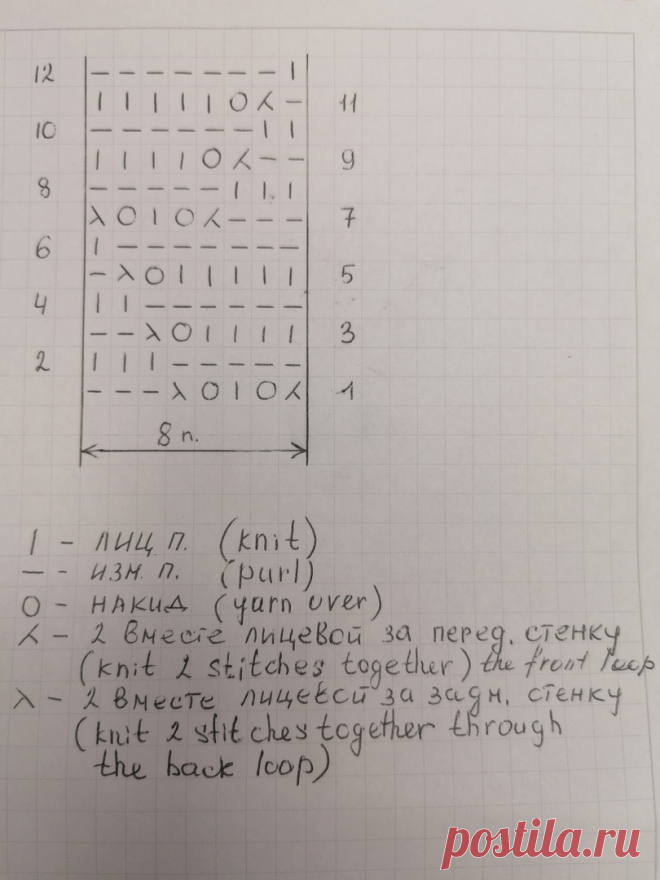 12 | — — — — — — — I |
| I I I I I O ⅄ — | 11
10 | — — — — — — I I |
| I I I I O ⅄ — — | 9
8 | — — — — — I I I |
| λ O I O ⅄ — — — | 7
6 | I — — — — — — — |
| — λ O I I I I I | 5
4 | I I — — — — — — |
| — — λ O I I I I | 3
2 | I I I — — — — — |
| — — — λ O I O ⅄ | 1
8 п.
I – лиц п. (knit)
— – изн. п. (purl)
O – накид (yarn over)
⅄ – 2 вместе лицевой за перед. стенку
(knit 2 stitches together) the front loop
λ – 2 вместе лицевой за задн. стенку
(knit 2 stitches together through
the back loop)
postila.ru